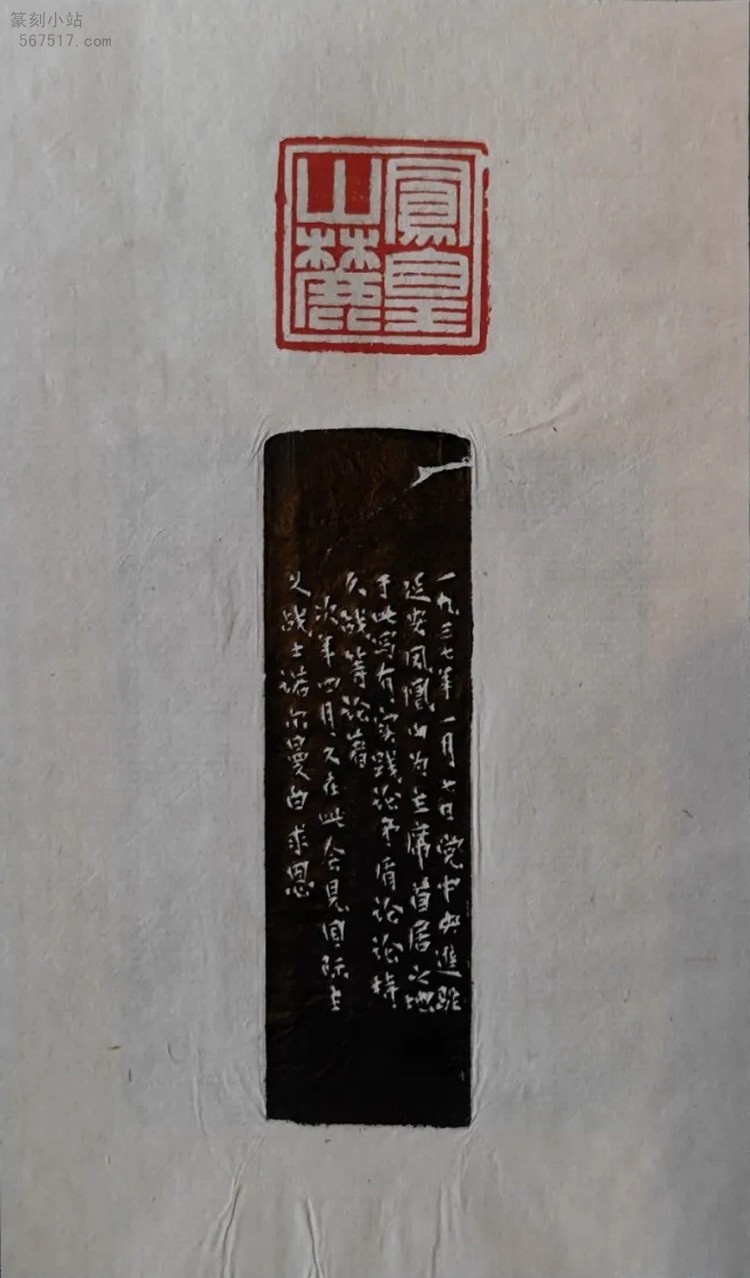 篆刻小站
567517.com
鳳皇
山麓
一九三七年一月七日党中央進駐
延安凤凰山为主席首居之地
于此写有实践论矛盾论论持
久战等论著
次年四月又在此会见国际主
义战士诺尔曼白求恩